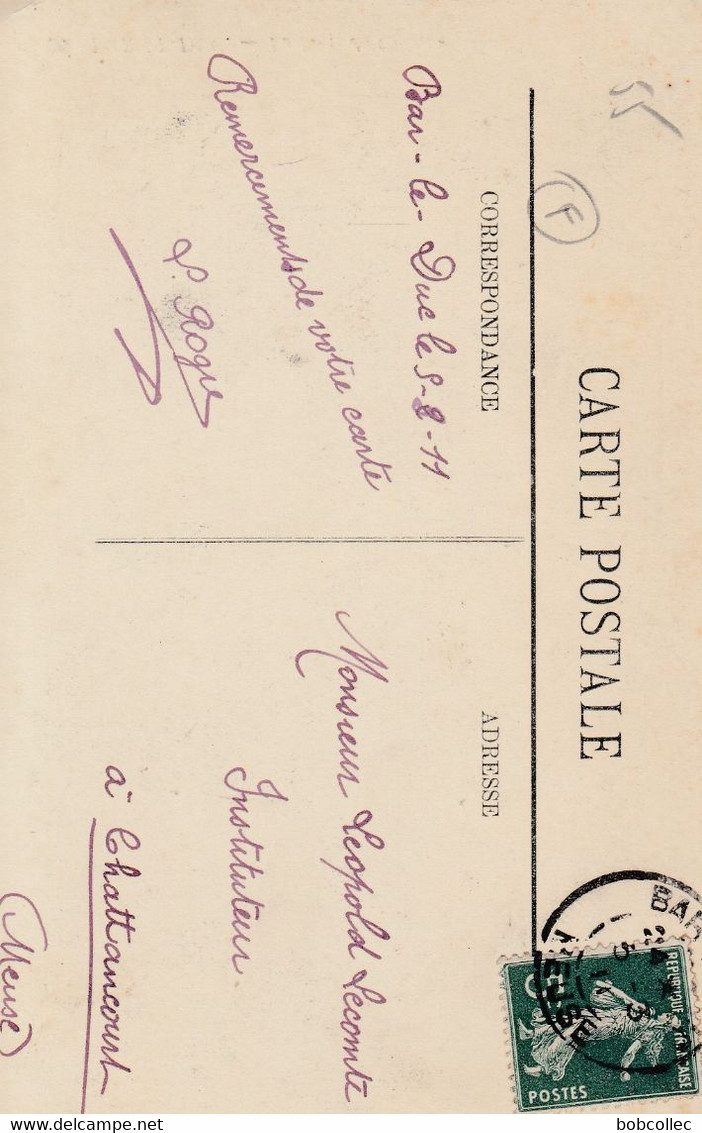 55
F
CARTE POSTALE
CORRESPONDANCE
Bar-le-Duc le 5-2-11
Remerciments de votre carte
L. Rogie
ADRESSE
Monsieur Leopold Lecomte
Instituteur
à Chattancourt
(Meuse)
BAR
MEUSE
REPUBLIQUE FRANÇAISE
POSTES
bobcollec